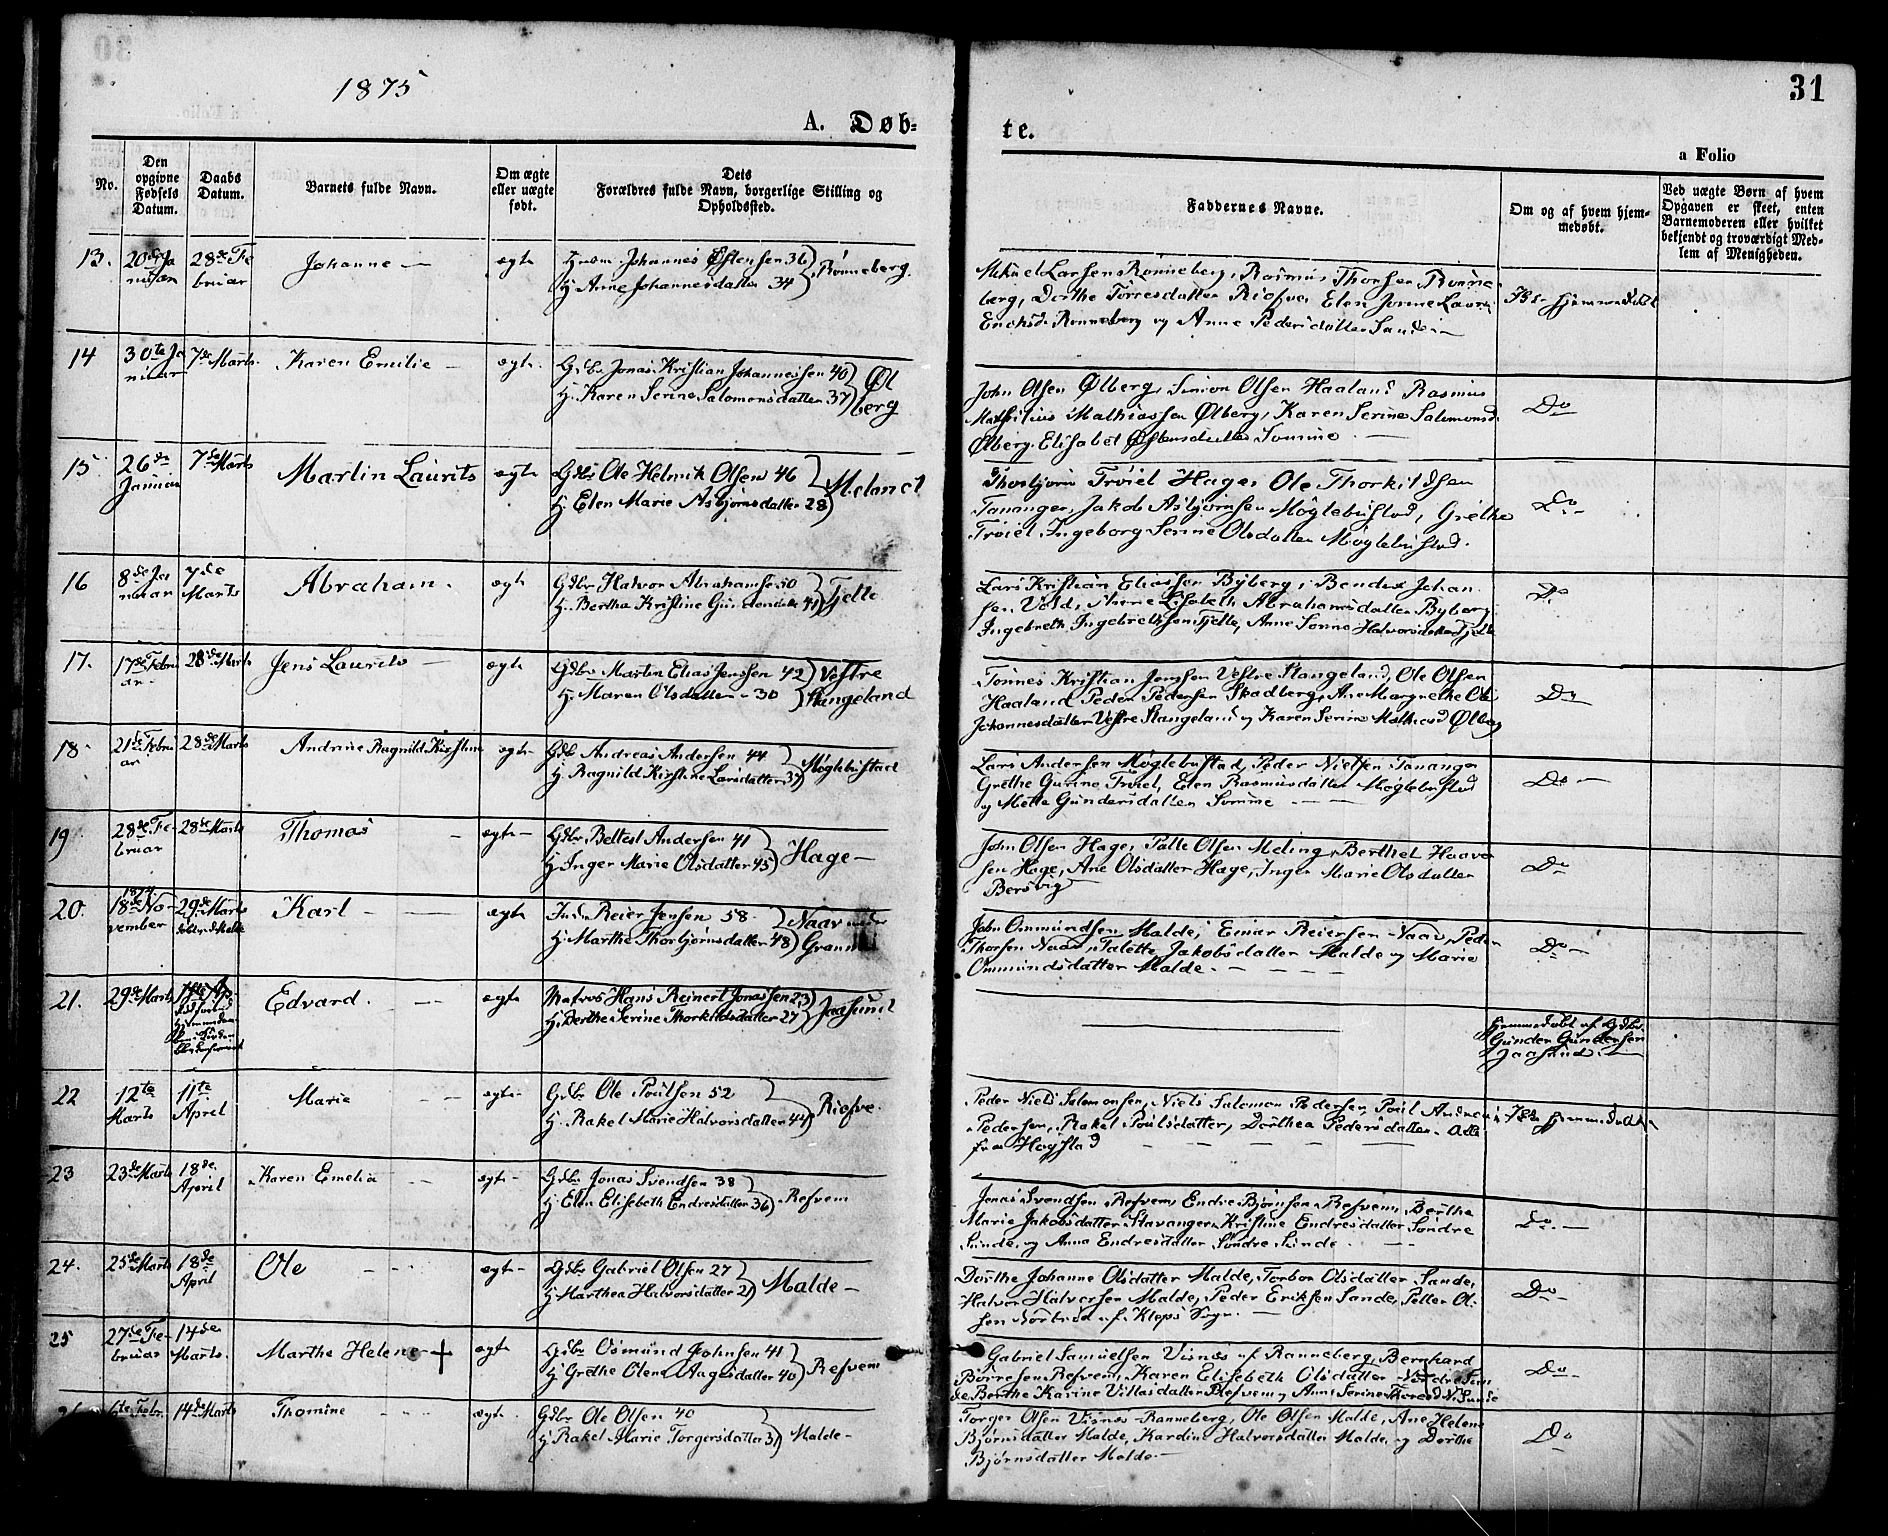 1875
31
A. Døb=
te.
a Folio
No.
Den opgivne Fødsels Datum.
Daabs Datum.
Barnets fulde Navn.
Om ægte eller uægte født.
Dets Forældres fulde Navn, borgerlige Stilling og Opholdssted.
Faddernes Navne.
Om og af hvem hjem-
medøbt.
Ved uægte Børn af hvem
Opgaven er skeet, enten
Barnemoderen eller hvilket
bekjendt og troværdigt Med-
lem af Menigheden.
13. 20de Ja 28de Fe Johanne — ægte Johannes Østensen 36 Rønneberg.
nuar bruar Hu Anne Johannesdatter 34
Mikael Larsen Rønneberg, Rasmus Thorsen Rønne
berg, Dorthe Torresdatter Risfve, Elen
Rønneberg og Anne Pedersdatter Sande — Ikke hjemmedøbt
14 30te Ja 7de Marts Karen Emilie — ægte. Gdbr Jonas Kristian Johannessen 40 Øl
nuar Hu. Karen Serine Salomonsdatter 37 berg
John Olsen Ølberg, Simon Olsen Haaland Rasmus
Mathias Mathiassen Ølberg, Karen Serine Salomonsd.
Ølberg. Elisabet Østensdatter Somme. — Do
15 26de 7de Marts Martin Laurits ægte Gdbr Ole Helmik Olsen 46 Melanet
Januar Hu. Elen Marie Asbjørnsdatter 28
Thorbjørn Trøiel Hage, Ole Thorkildsen
Tananger, Jakob Asbjørnsen Møglebustad, Grethe
Trøiel, Ingeborg Serine Olsdatter Møglebustad. Do
16 8de Ja 7de Abraham. ægte Gdbr Halvor Abrahamsen 50 Tjelte
nuar Marts Hu. Bertha Kristine 41
Lars Kristian Eliassen Byberg, Bendix Johan
sen Vold, Lisabeth Abrahamsdatter Byberg
Ingebreth Ingebrethsen Tjelte, Anne Halvorsdatter Tjelte Do
17. 17de Febru 28de Marts Jens Laurits — ægte Gdbr Martin Elias Jenssen 42 Vestre
ar. Hu Maren Olsdatter — 30 Stangeland
Tønnes Kristian Jonssen Vestre Stangeland, Ole Olsen
Haaland Peder Pedersen Skadberg, Ane Margrethe
Johannesdatter Vestre Stangeland og Karen Serine Ølberg Do
18. 21de Febru 28de Marts Andrine Ragnild Kirstine ægte Gdbr Andreas Andersen 44 Møglebustad
ar Hu Ragnild Kirstine Larsdatter 37
Lars Andersen Møglebustad Peder Nielsen Tananger
Grethe Gurine Trøiel, Elen Rasmusdatter Møglebustad
og Mette Gundersdatter Somme — Do —
19 28de Fe 28de Marts Thomas — ægte — Gdbr Andersen 41 Hage —
bruar Hu Inger Marie Olsdatter 45
John Olsen Hage, Palle Olsen Meling, Berthel Haavo
sen Hage, Ane Olsdatter Hage, Inger Marie Olsdatter
Bersvig Do
20. 1874 18de No 29de Marts Karl — — ægte Ind. Reier Jensen 58. Naav
vember Hu Marthe Thorbjørnsdatter 48
John Ommundsen Malde, Einar Reiersen Naav, Peder
Thorsen Naav, Talette Jakobsdatter Malde og Marie
Ommundsdatter Malde. — Do —
21. 29de Marts Edvard. — ægte Matros Hans Reinert Jonassen 23 Jaasund
Hu. Berthe Serine Thorkildsdatter 27
Hjemmedøbt af Gdbr.
Gunder Gundersen
Jaasund. —
22 12te 11te Marie — ægte — Gdbr Ole Poulsen 52 Risfve.
Marts April Hu. Rakel Marie Halvorsdatter 44
Peder Niels Salomonsen, Niels Salomon Pedersen, Poul Andreas
Pedersen, Rakel Poulsdatter, Dorthea Pedersdatter. Alle
fra Hogstad — Ikke hjemmedøbt
23 23de Marts 18de Karen Emelia — ægte — Gdbr Jonas Svendsen 38 Refvem
April Hu Elen Elisebeth Endresdatter 36
Jonas Svendsen Refvem, Endre Bjørnsen Refvem, Berthe
Marie Jakobsdatter Stavanger, Kristine Endresdatter Søndre
Sunde, og Anna Endresdatter Søndre Sunde — Do. —
24. 25de Marts 18de Ole — ægte — Gdbr Gabriel Olsen 27 Malde —
April Hu Marthea Halvorsdatter 21
Dorthe Johanne Olsdatter Malde, Torbor Olsdatter Sande,
Halvor Halvorsen Malde, Peder Eriksen Sande, Petter Ol
sen af Kleps Sogn. — Do —
25 27de Fe 14de Marthe Helene + ægte Gdbr Osmund Johnsen 41 Refvem
bruar Marts. Hu Grethe Olene Aagesdatter 40
Gabriel Samuelsen Visnes af Ranneberg, Bernhard
Børresen Refvem, Karen Elisebeth Olsdatter Nordre Sun
de, Berthe Karine Villasdatter Refvem og Anne Serine Thoresd N. Sunde Do —
6te Febr 14de Marts Thomine — ægte — Gdbr Ole Olsen 40 Malde —
Hu Rakel Marie Torgersdatter 31
Torger Olsen Visnes Ranneberg, Ole Olsen Malde, Ane Helene
Bjørnsdatter Malde, Kardine Halvorsdatter Malde, og Dorthe
Bjørnsdatter Malde — Do